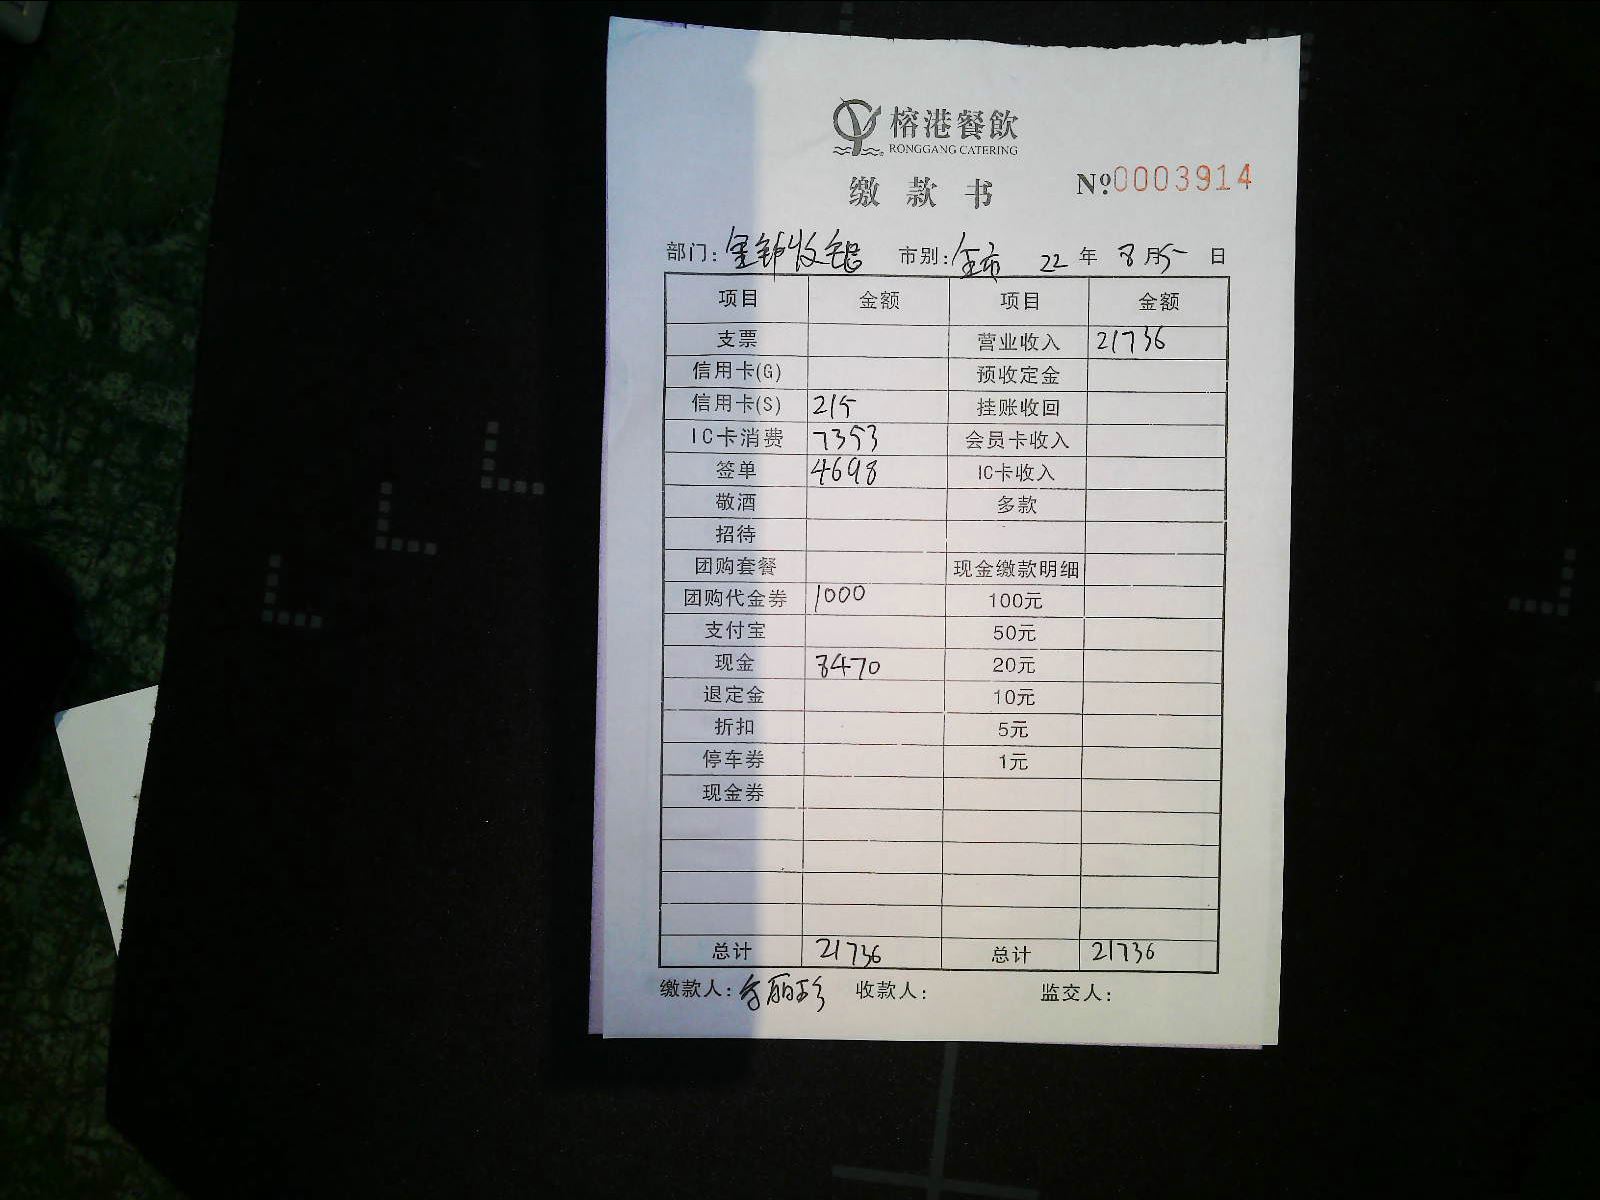 榕港餐飲
RONGGANG CATERING
缴款书 Nº:0003914
部门: 收银 市别: 全市 22年8月5日
项目 金额 项目 金额
支票 营业收入 21736
信用卡(G) 预收定金
信用卡(S) 215 挂账收回
IC卡消费 7353 会员卡收入
签单 4698 IC卡收入
敬酒 多款
招待
团购套餐 现金缴款明细
团购代金券 1000 100元
支付宝 50元
现金 8470 20元
退定金 10元
折扣 5元
停车券 1元
现金券
总计 21736 总计 21736
缴款人: 丽珍 收款人: 监交人: